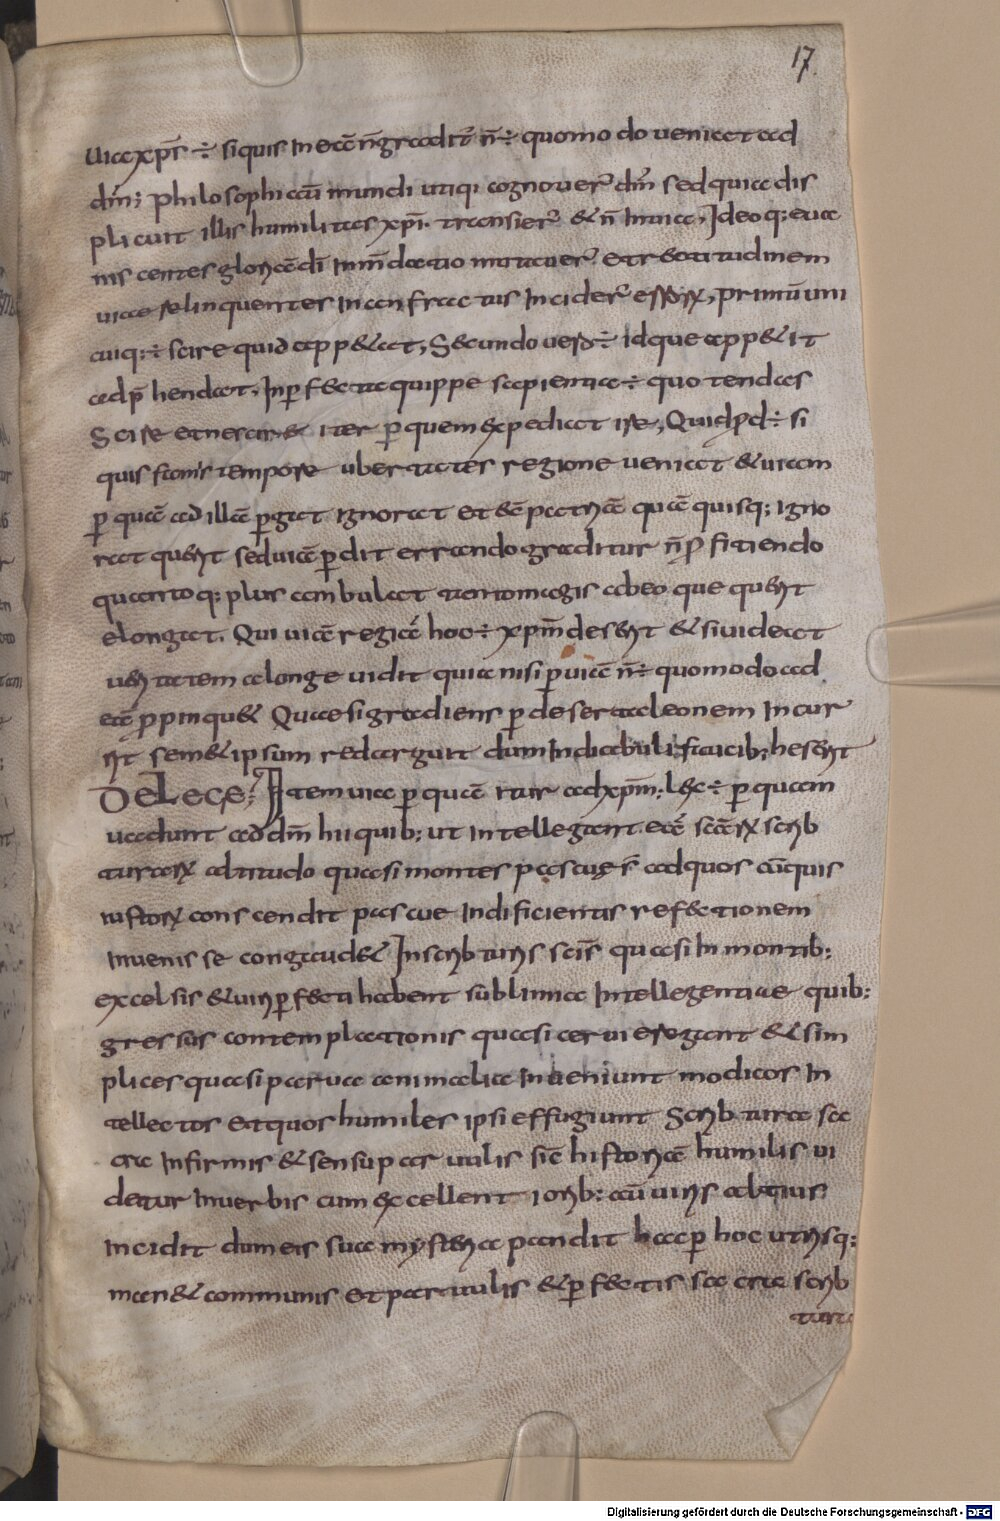 17.
uia xp̄s ÷ siquis in ea n̄ graditr̄ n̄ ÷ quomodo ueniat ad
dm̄; philosophi cū mundi utiqi cognouer̄ dm̄ sed quia dis
plicuit illis humilitas xp̄i. transier̄ & n̄ in uia, Ideoq; eua
nis centes glorcādi inm̄dacio mutauer̄ et rectitudinem
uiae relinquentes in anfractus incider̄
primū uni
cuiq: ÷ scire quid app&at, Secundo uero ÷ idque app&it
adp̄hendat. Inp̄fectae quippe sapientiae ÷ quo tendas
Scire et nescire iter p̄ quem expediat ire, Quid ÷ si
quis famis tempore ubertates regione ueniat & uiam
p̄ quā ad illā p̄gat ignorat et sē patriā quā quisq; igno
rat querit sed uiā p̄dit errando graditur n̄ fitiendo
quantoq: plus ambulat tanto magis ab eo que querit
elongat. Qui uiā regiā hoc ÷ xp̄m deserit & si uideat
ueritatem a longe uidit quia nisi p̄ uiā n̄ ÷ quomodo ad
eā p̄pinqu& Quasi gradiens p̄ deserta leonem incur
rit sem&ipsum redarguit dum in diabuli faucib; heserit
De Lege; Item uia p̄ quā itur ad xp̄m; lex ÷ p̄ quam
uadunt ad dm̄ hii quib; ut intellegant eā scārx scrib
turarx altitudo quasi montes pascuę s̄ ad quos cū quis
iustorx conscendit pascue indificientis refectionem
inuenisse congaud& In scribturis scīs quasi in montib;
excelsis & uiri p̄fecti habent sublimia intellegentiae quib;
gressus contemplationis quasi cerui erogant & sim
plices quasi parua animalia inueniunt modicos in
tellectos et quos humiles ipsi effugiunt Scribtura sa
cra infirmis & sensu paruulis sic̄ historicā humilis ui
detur in uerbis cum excellentiorib; aū uiris altius
incidit dum eis sua mysteria pandit hac p̄ hoc utrisq;
man& communis et paruulis & p̄fectis sacra scrib
tura
Digitalisierung gefördert durch die Deutsche Forschungsgemeinschaft - DFG